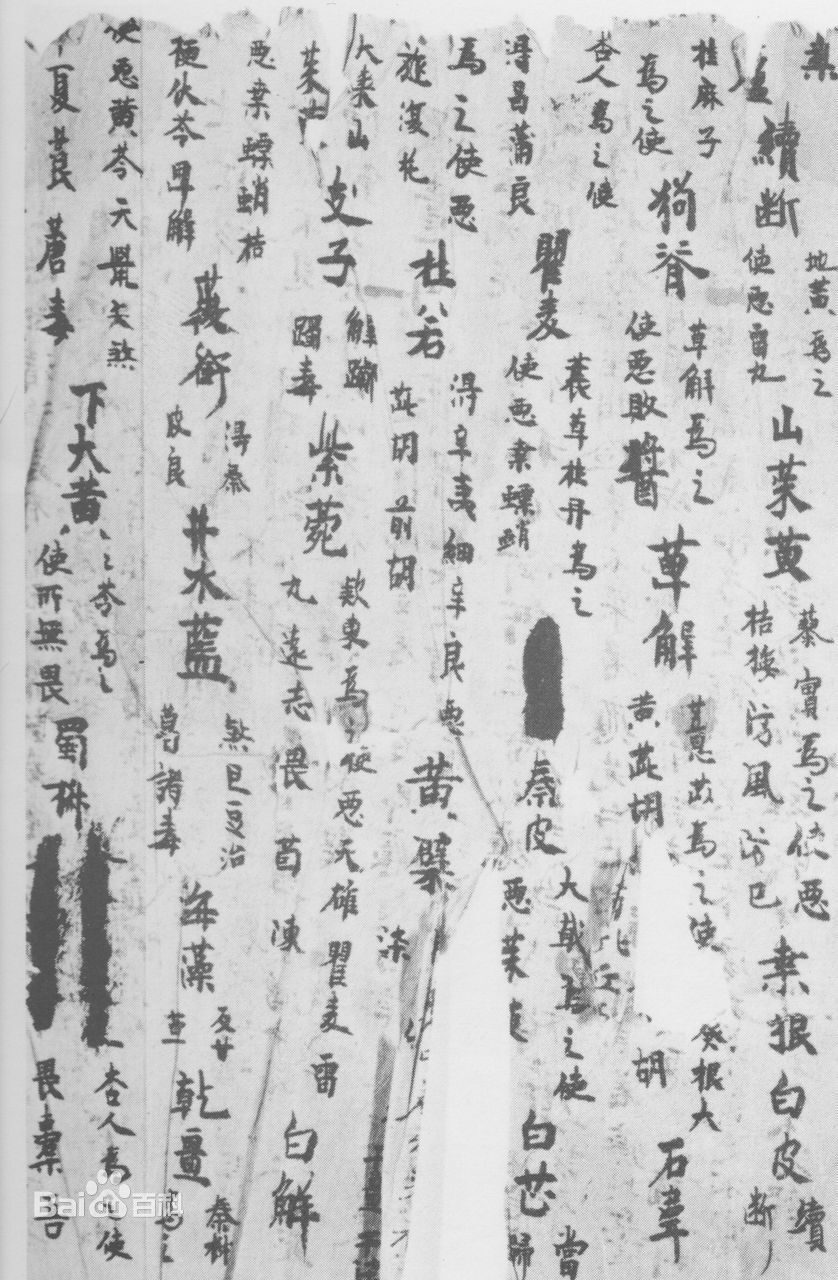 續断 地黄為之使惡雷丸 山茱萸 蓼實為之使惡桔梗防風防己 桒根白皮 續断
桂麻子為之使 狗脊 萆解為之使惡敗醬 萆解 薏苡為之使 葵根大黄茈胡 胡 石韋
杏人為之使得昌蒲良 瞿麦 蘘草牡丹為之使惡桒螵蛸 秦皮 大戟為之使惡茱萸 白芷 當歸
為之使惡旋復花 杜若 得辛夷細辛良惡茈胡前胡 黄檗 柒
大棗山茱萸 支子 解躑躅毒 紫菀 款東為使惡天雄瞿麦雷丸遠志畏茵陳 白鮮
惡桒螵蛸桔梗伏苓萆解 薇銜 得秦皮良 井水藍 煞巴豆治葛諸毒 海藻 反甘草 乾薑 秦椒為之
使惡黄芩天鼠矢煞 莨菪毒 下大黄 芩為之使所無畏 蜀椒 杏人為之使畏橐吾
Baidu百科